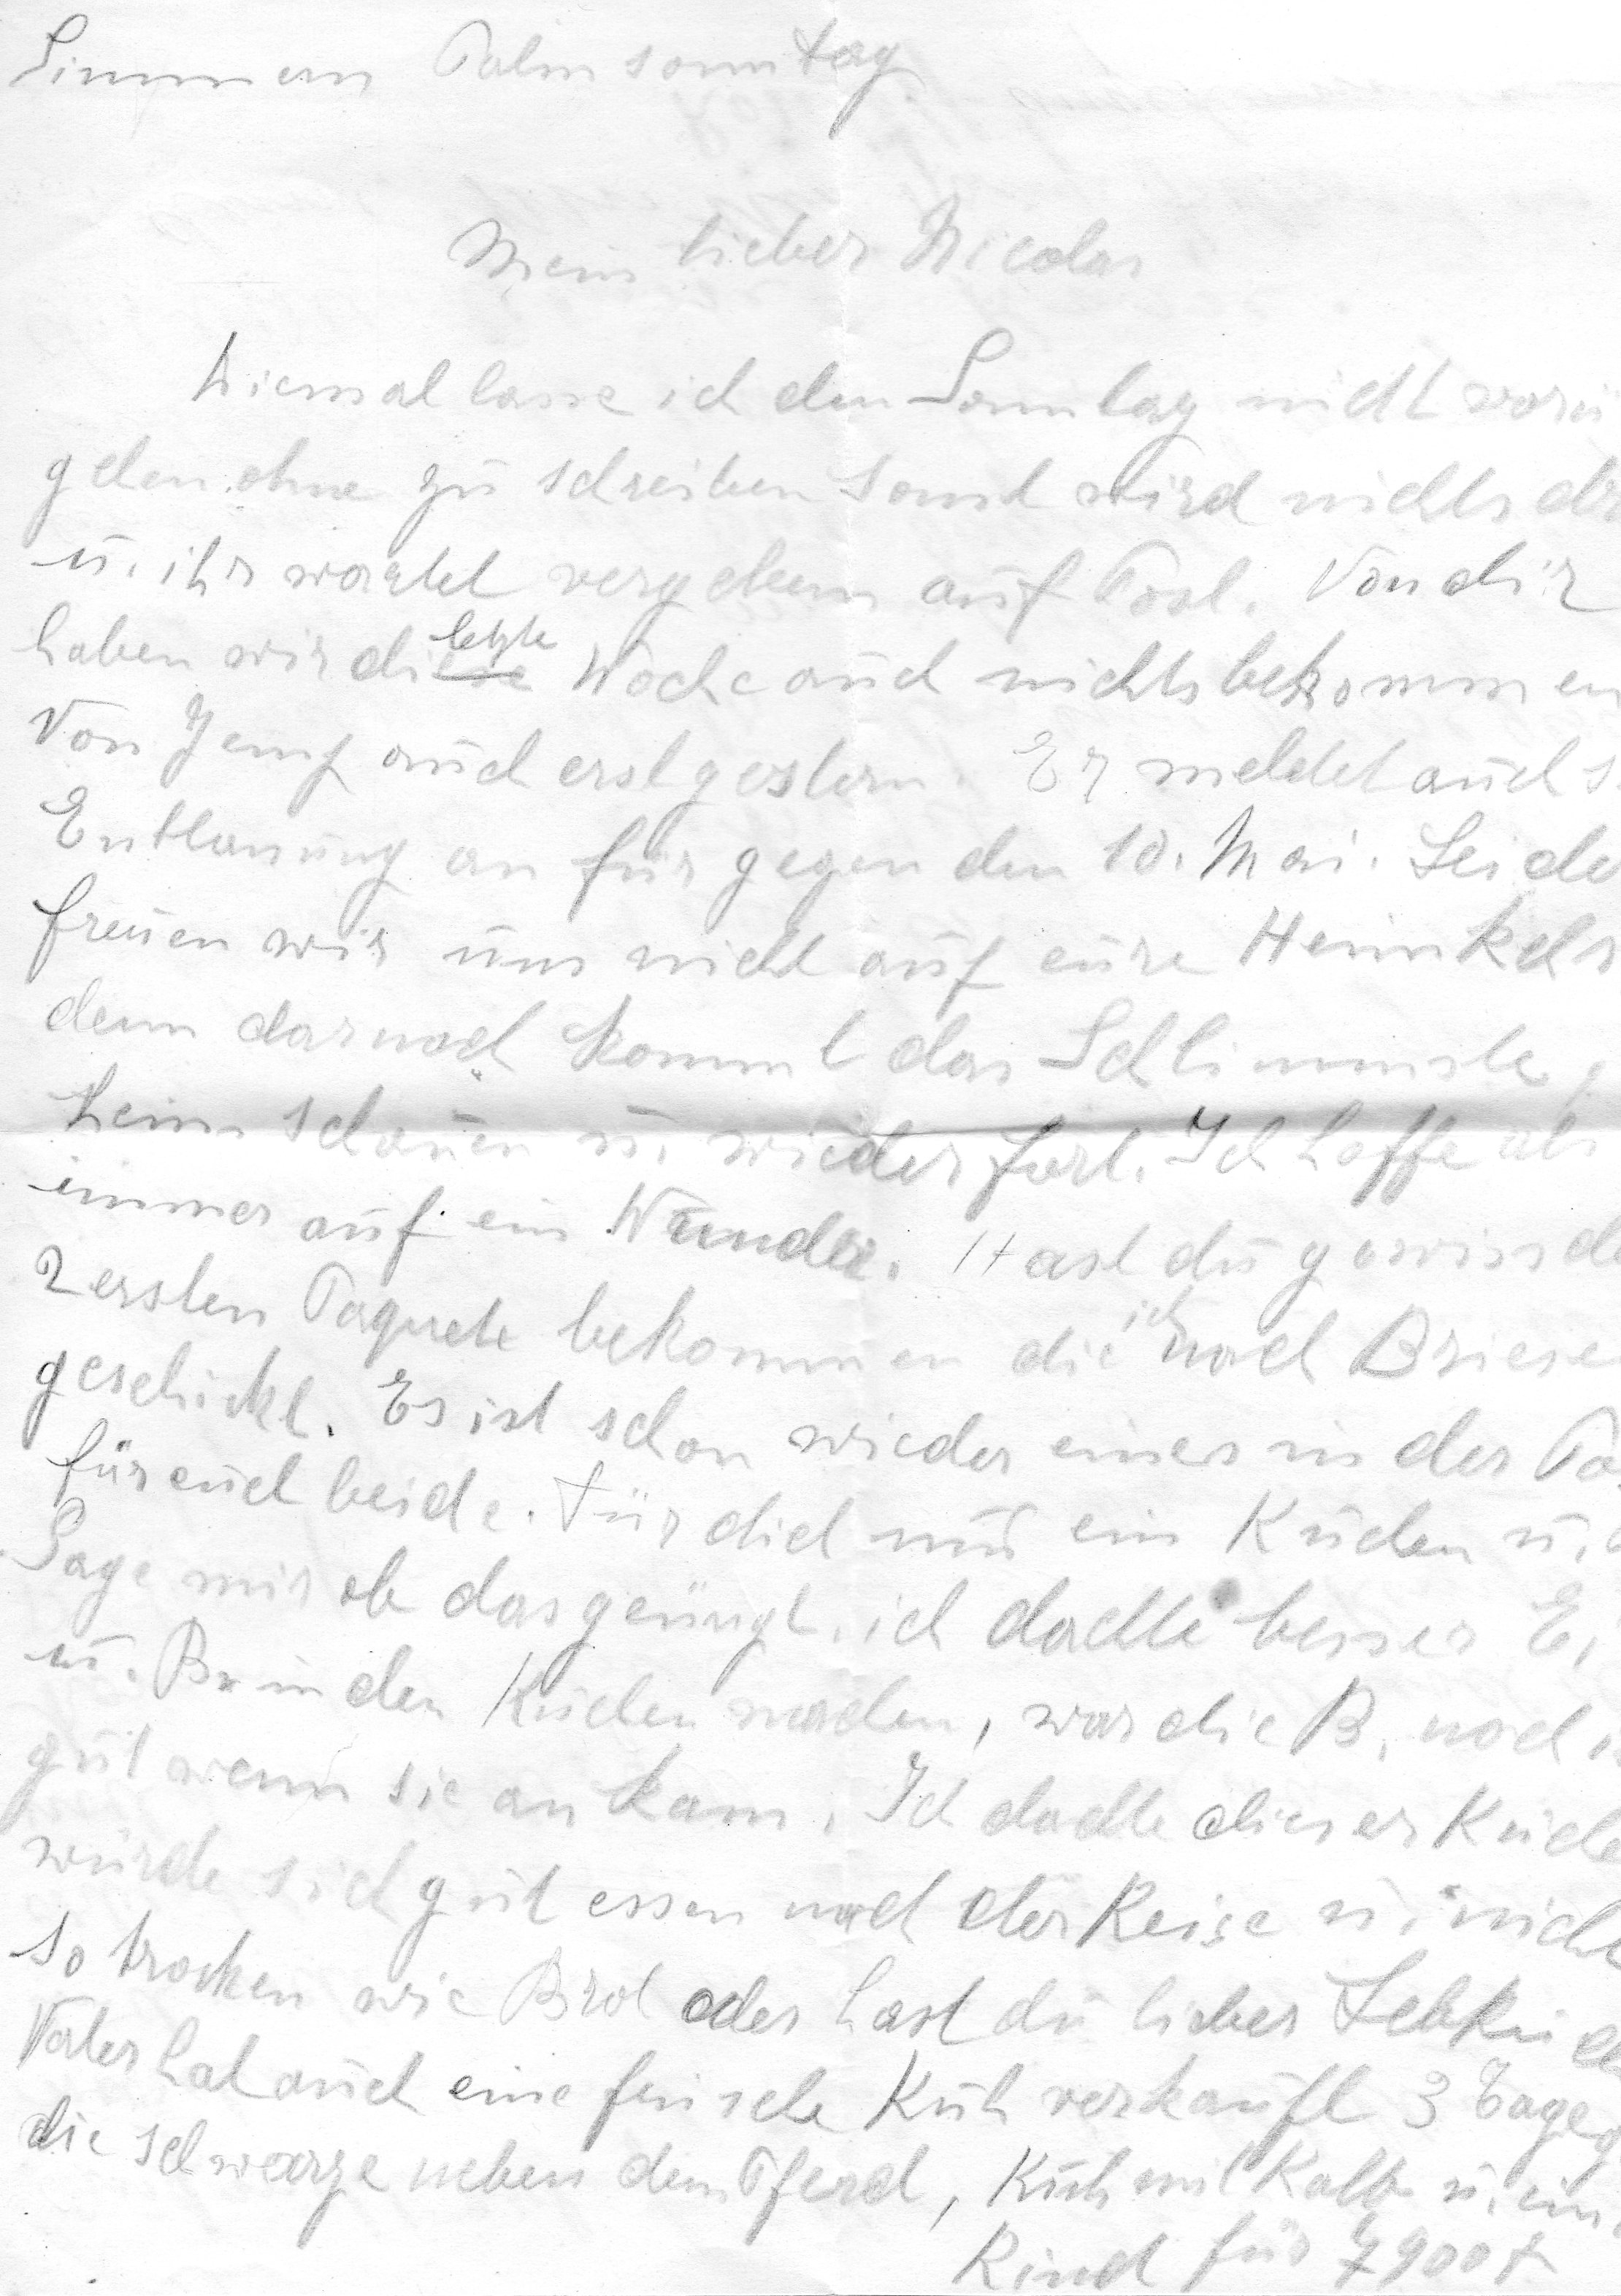 Simmern Palmsonntag
Mein lieber Nicolas
Diesmal lasse ich den Sonntag nicht vorü
gehen ohne zu schreiben sonst wird nichts dr
u. ihr wartet vergebens auf Post. Von dir
haben wir die letzte Woche auch nichts bekommen
Von Jemp auch erst gestern. Er meldet auch s
Entlassung an für gegen den 10. Mai. Leide
freuen wir uns nicht auf eure Heimkehr
denn darnach kommt das Schlimmste,
heim schauen u. wieder fort. Ich hoffe ab
immer auf ein Wunder. Hast du gewiss di
2 ersten Paquete bekommen die ich nach Briesen
geschickt. Es ist schon wieder eines in der Po
für euch beide. Für dich nur ein Kuchen u.
Sage mir ob das genügt, ich dachte besser Ei
u. B. in den Kuchen machen, war die B. noch
gut wenn sie ankam. Ich dachte dieser Kuche
würde sich gut essen nach der Reise u. nicht
so trocken wie Brot oder hast du lieber Lebkuch
Vater hat auch eine frische Kuh verkauft 3 Tage g
die schwarze neben dem Pferd, Kuh mit Kalb u. ein
Rind für 7900f